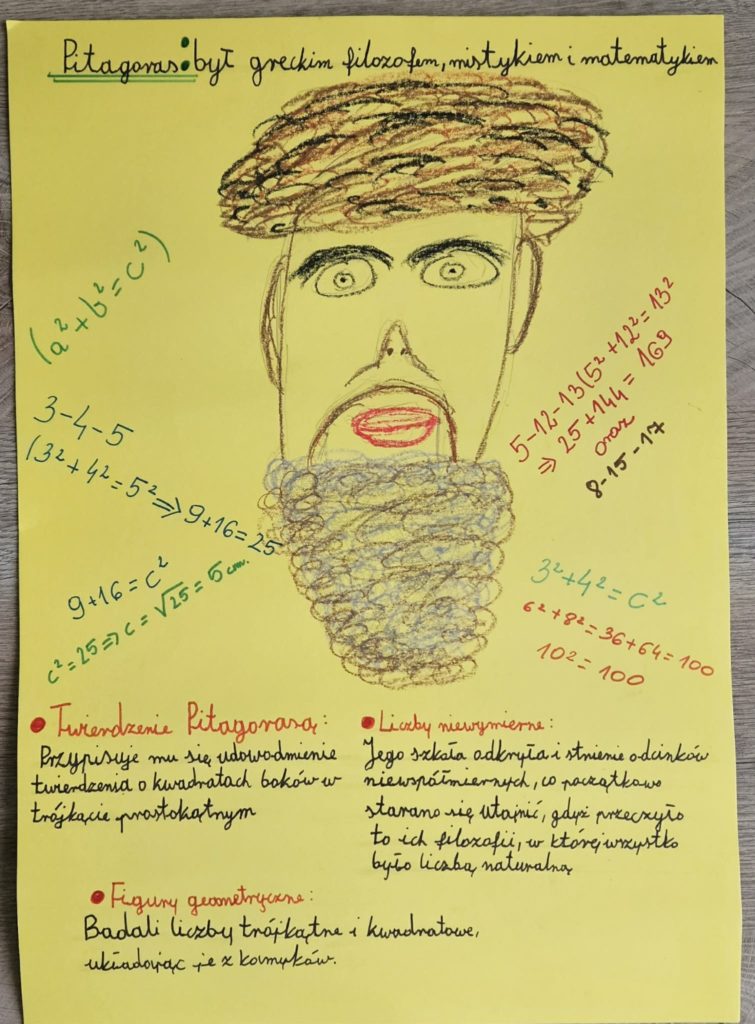 Pitagoras: był greckim filozofem, mistykiem i matematykiem
(a² + b² = c²)
3-4-5
(3² + 4² = 5² => 9+16 = 25
9+16 = c²
c² = 25 => c = √25 = 5 cm.
5-12-13 (5² + 12² = 13²
=> 25 + 144 = 169
oraz
8-15-17
3² + 4² = c²
6² + 8² = 36 + 64 = 100
10² = 100
• Twierdzenie Pitagorasą:
Przypisuje mu się udowodmienie
twierdzenia o kwadratach boków w
trójkącie prostokątnym
• Liczby niewymierne:
Jego szkała odkryła i stnienie odcinków
niewspółmiernych, co początkowo
starano się utajnić, gdyż przeczyło
to ich filozofii, w której wszystko
było liczbą naturalną
• Figury geometryczne:
Badali liczby trójkątne i kwadratowe,
układając je z kamyków.